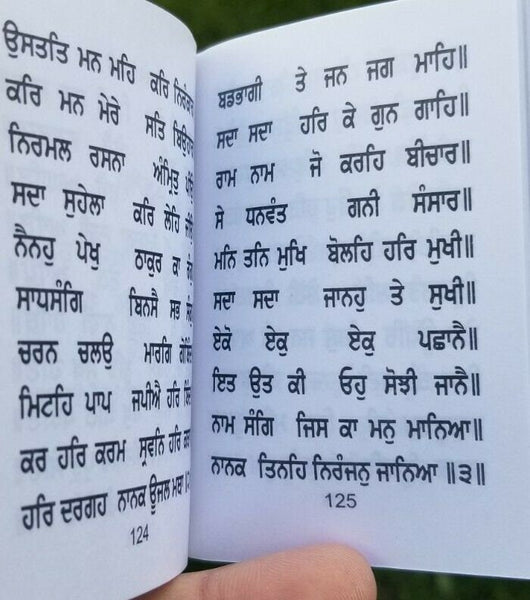 ਉਸਤਤਿ ਮਨ ਮਹਿ ਕਰਿ
ਕਰਿ ਮਨ ਮੇਰੇ ਸਤਿ
ਨਿਰਮਲ ਰਸਨਾ ਅੰਮ੍ਰਿਤੁ
ਸਦਾ ਸੁਹੇਲਾ ਕਰਿ ਲੇਹਿ
ਨੈਨਹੁ ਪੇਖੁ ਠਾਕੁਰ ਕਾ
ਸਾਧਸੰਗਿ ਬਿਨਸੈ ਸਭ
ਚਰਨ ਚਲਉ ਮਾਰਗਿ
ਮਿਟਹਿ ਪਾਪ ਜਪੀਐ ਹਰਿ
ਕਰ ਹਰਿ ਕਰਮ ਸ੍ਰਵਨਿ ਹਰਿ
ਹਰਿ ਦਰਗਹ ਨਾਨਕ ਊਜਲ ਮਥਾ
124
ਬਡਭਾਗੀ ਤੇ ਜਨ ਜਗ ਮਾਹਿ॥
ਸਦਾ ਸਦਾ ਹਰਿ ਕੇ ਗੁਨ ਗਾਹਿ॥
ਰਾਮ ਨਾਮ ਜੋ ਕਰਹਿ ਬੀਚਾਰ॥
ਸੇ ਧਨਵੰਤ ਗਨੀ ਸੰਸਾਰ॥
ਮਨਿ ਤਨਿ ਮੁਖਿ ਬੋਲਹਿ ਹਰਿ ਮੁਖੀ॥
ਸਦਾ ਸਦਾ ਜਾਨਹੁ ਤੇ ਸੁਖੀ॥
ਏਕੋ ਏਕੁ ਏਕੁ ਪਛਾਨੈ॥
ਇਤ ਉਤ ਕੀ ਓਹੁ ਸੋਝੀ ਜਾਨੈ॥
ਨਾਮ ਸੰਗਿ ਜਿਸ ਕਾ ਮਨੁ ਮਾਨਿਆ॥
ਨਾਨਕ ਤਿਨਹਿ ਨਿਰੰਜਨੁ ਜਾਨਿਆ ॥੩॥
125